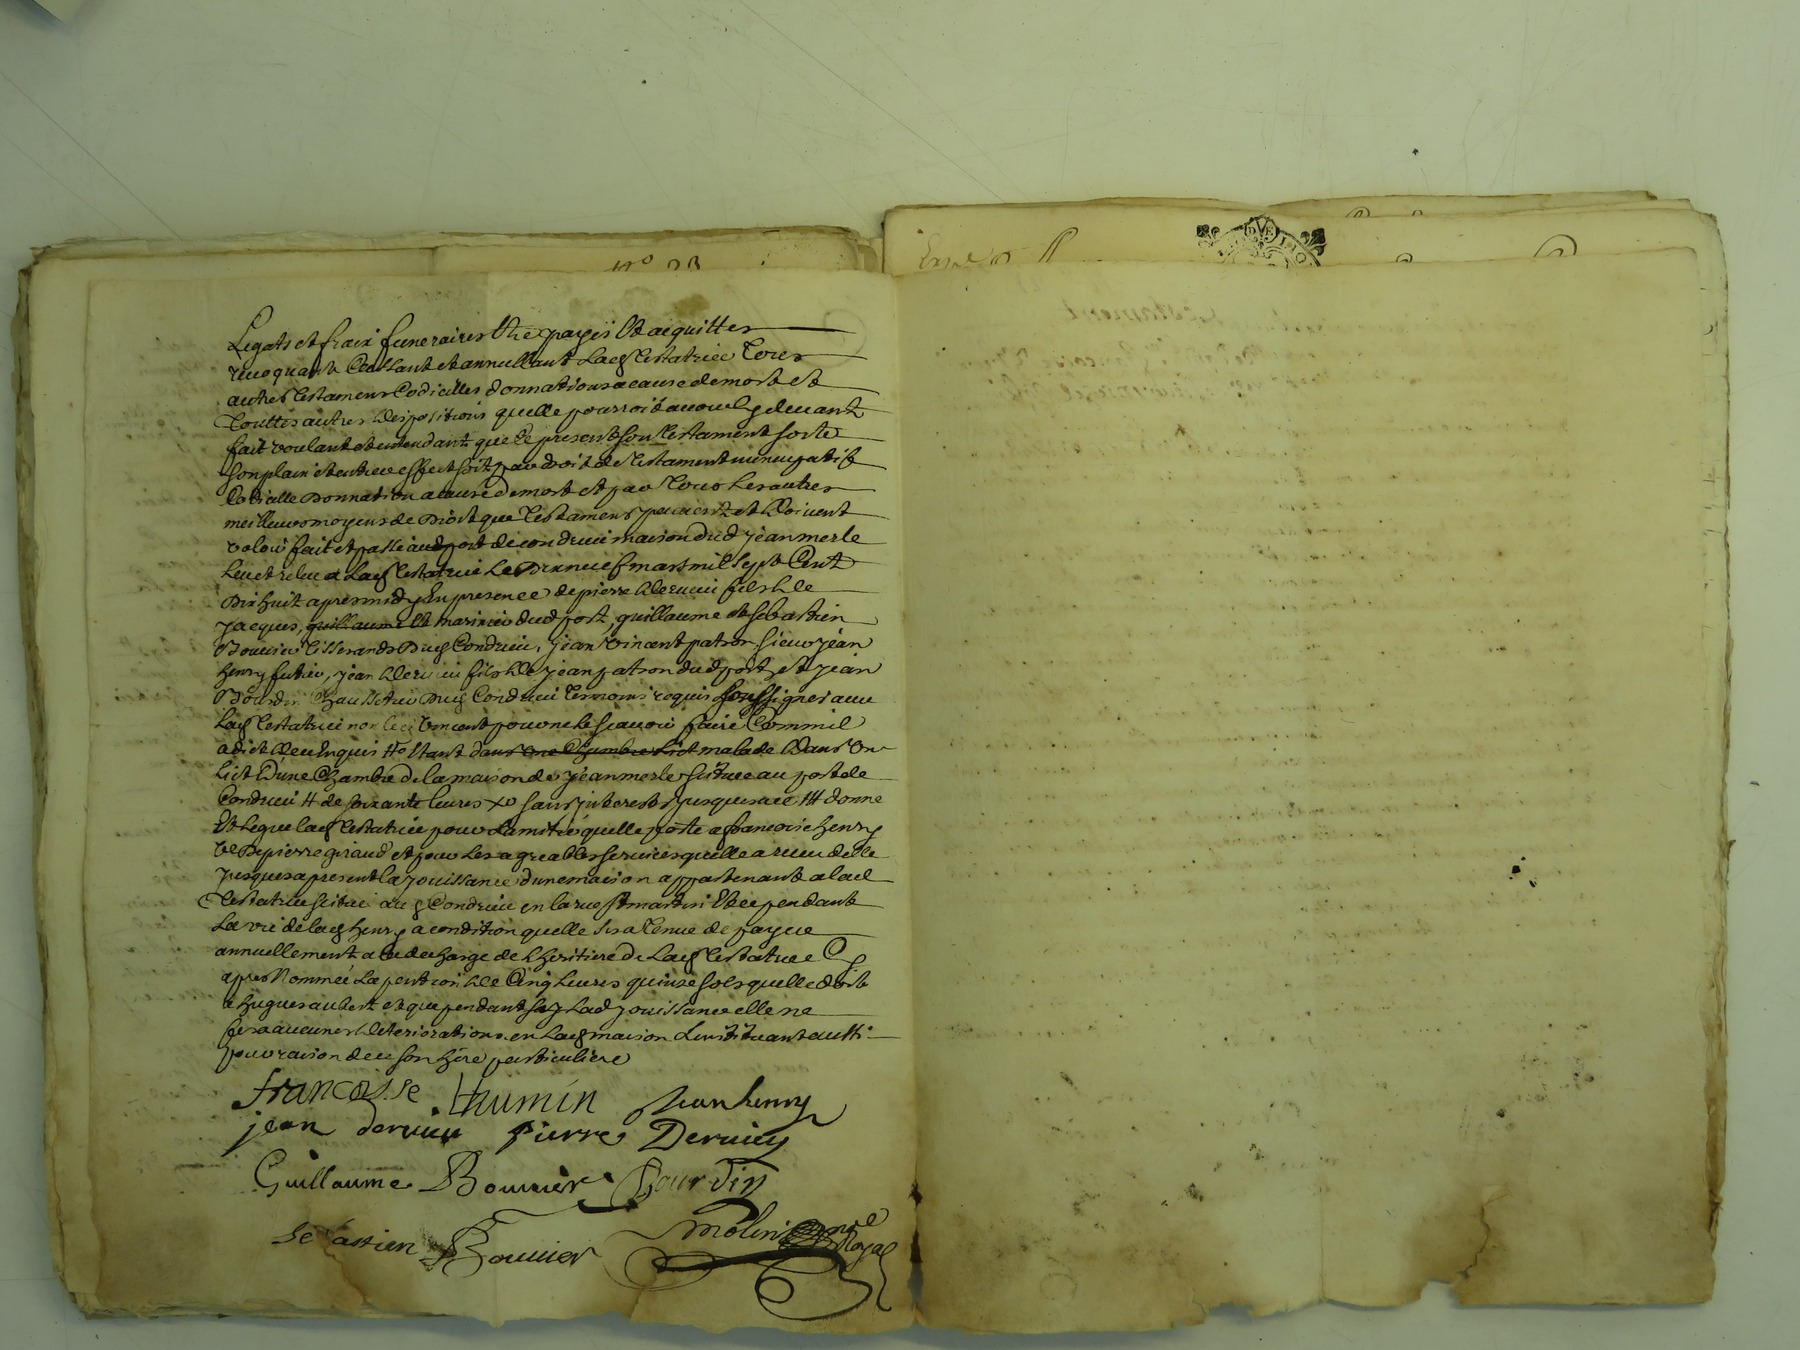 N° 23
Legats et fraix funeraires Estre payés Et acquittes
revoquant Cassant et annullant Lad Testatrice Tous
autres Testamens Codicilles donnations a cause de mort et
Touttes autres dispositions quelle pourroit avoir cy devant
fait voulant et entendant que Le present son Testament sorte
son plain et entier effect soit par droit de Testament nuncupatif
Codicille Donnation a cause de mort et par Tous Les autres
meilleurs moyens de Droit que Testamens peuvent et doivent
valoir fait et passé aud port de condrieu maison dud jean merle
Leu et releu a Lad Testatrice Le Dixneuf mars mil sept Cent
Dix huit apres midy En presence de pierre dervieu fils de
jacques, guillaume et marinier dud port, guillaume et sebastien
Bouvier Tisserands Dud Condrieu, jean vincent patron sieur jean
henry futier, jean dervieu fils de jean patron dud port et jean
Bourdin Chaussetier Dud Condrieu Temoins requis soussignes avec
Lad Testatrice non led vincent pour ne le scavoir faire Comm il
a dict de ce Enquis # Estant dans une Chambre Lict malade dans un
Lict d'une Chambre de la maison de jean merle scituee au port de
Condrieu # de soixante livres xo sans interests jusques a ce ## donne
Et Legue lad Testatrice pour L'amitié quelle porte a francoise henry
ve De pierre giraud et pour Les agreables services quelle a receu d'elle
jusques a present la jouissance d'une maison appartenante a lad
Testatrice scituee aud Condrieu en la rue St martin Et ce pendant
La vie de lad henry a condition quelle sera Tenue de payer
annuellement a la decharge de L heritiere de Lad Testatrice Cy
apres Nommée La pention de Cinq livres quinze sols quelle doit
a hugues aubert et que pendant Lad jouissance elle ne
fera aucunes deteriorations en Lad maison Linstituant aussi
pour raison de ce son here particuliere
francoisse thumin jean henry
jean dervieu pierre Dervieu
Guillaume Bouvier Bourdin
sebastien Bouvier Molin nore Royal